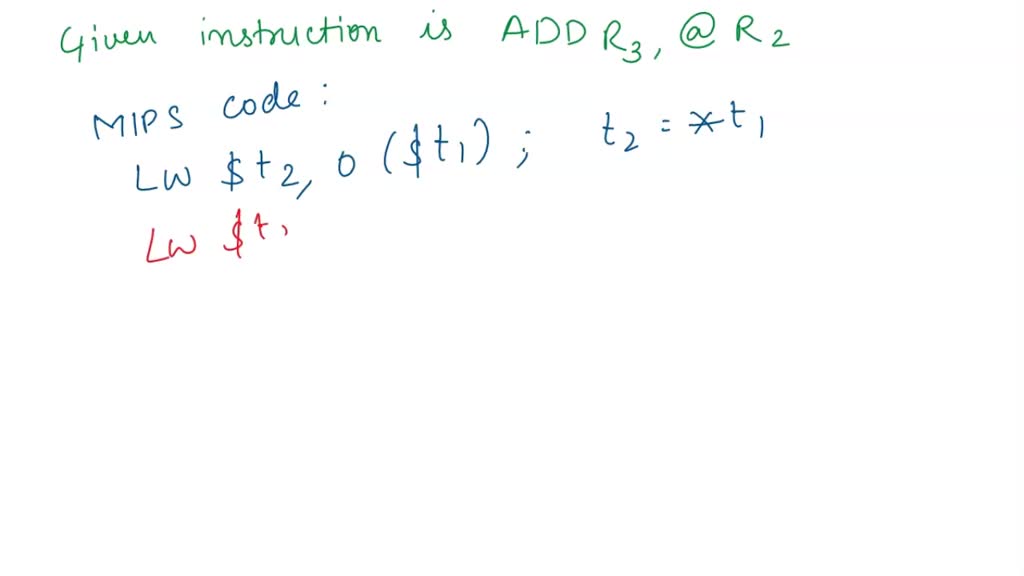 Given instruction is ADD R3, @ R2
MIPS code:
Lw $t2, 0 ($t1) ; t2 = *t1
Lw $t,